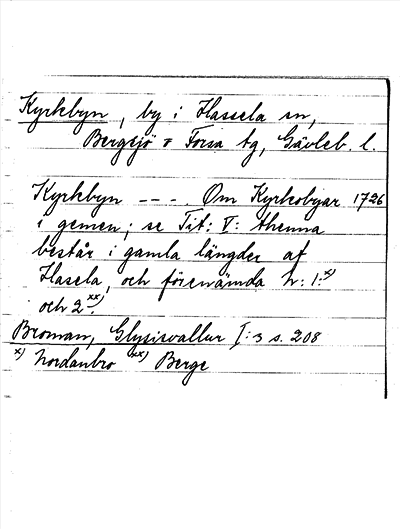 Kyrkbyn, by i Hassela sn,
Bergsjö o Forsa tg, Gävleb. l.
Kyrkbyn - - -. Om Kyrkiobyar 1726
i gemen; se Tit: V: thenna
består i gamla längder af
Hasela, och förenämda n: 1:x)
och 2xx).
Broman, Glysisvallur I:3 s. 208
x) Nordanbro xx) Berge